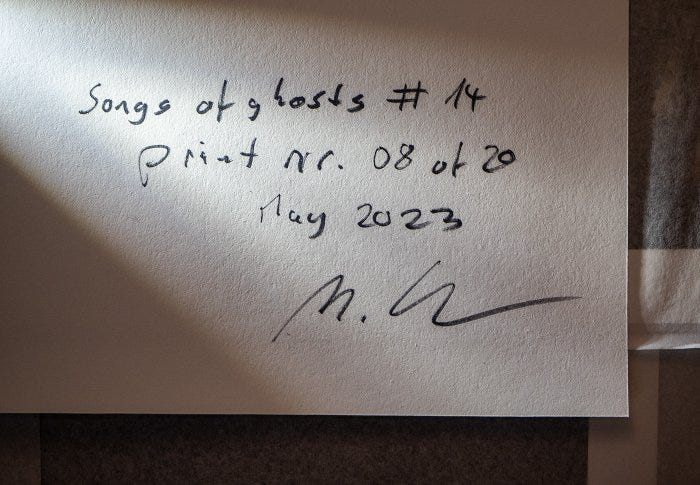 Songs of ghosts # 14
print nr. 08 of 20
May 2023